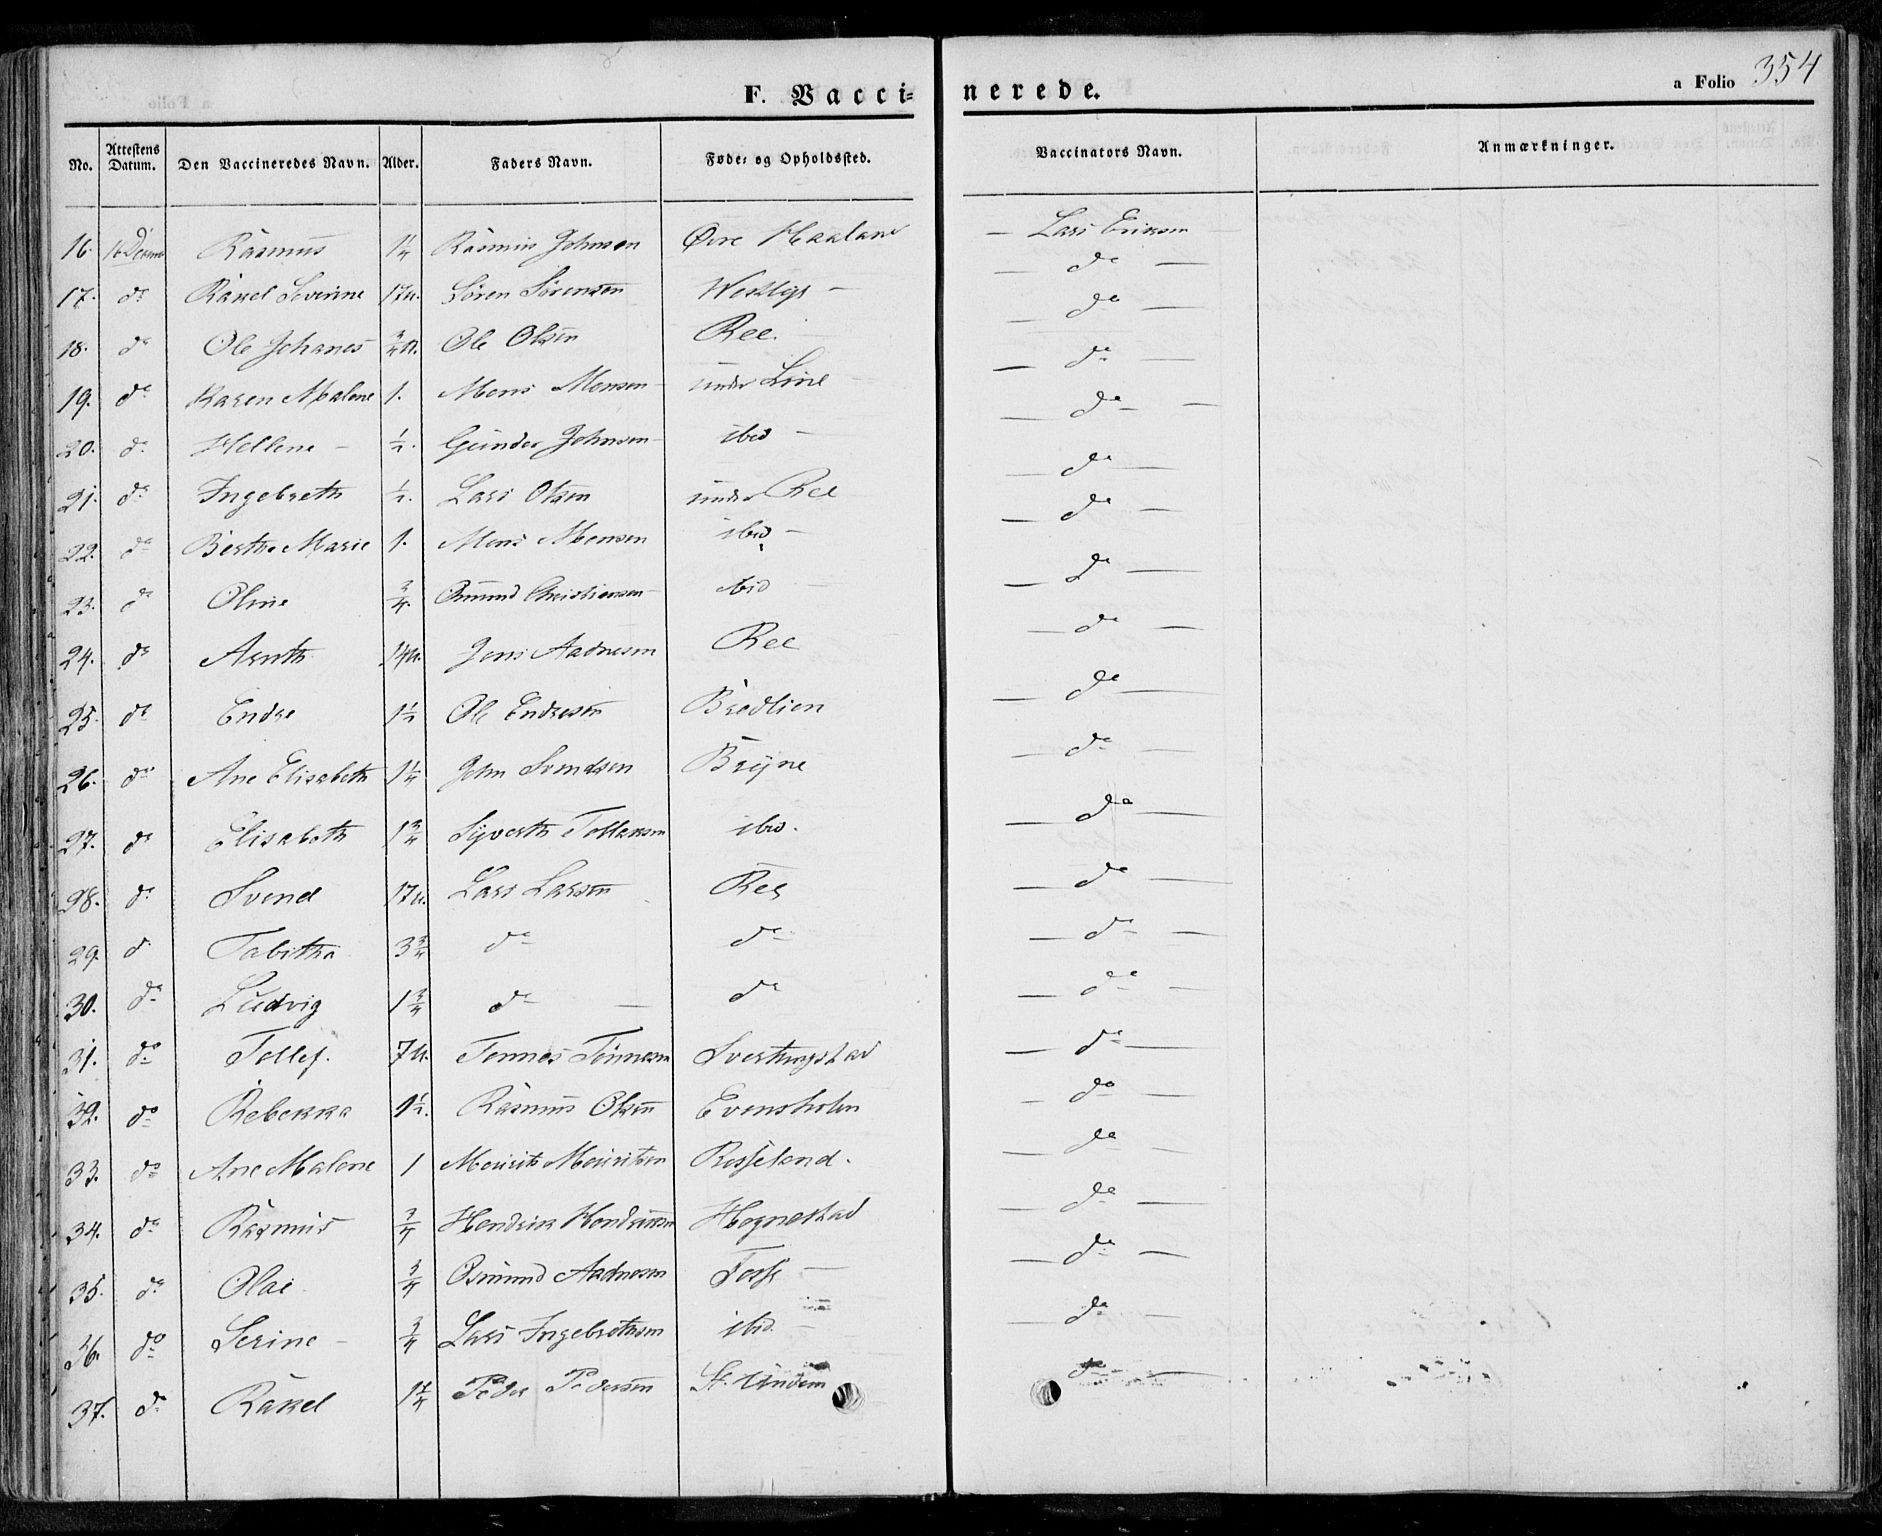 F. Vaccinerede. a Folio 354
No. Attestens Datum. Den Vaccineredes Navn. Alder. Faders Navn. Føde- og Opholdssted. Vaccinators Navn. Anmærkninger.
16. Rasmus 1¼ Rasmus Johnsen Øvre Haaland — Lars Eriksen
17. do Rakel Severine 17u. Sören Sörensen — do —
18. do Ole Johanes ¾ Ole Olsen Ree. — do —
19. do Karen Malene 1. Mons Monsen under Line — do —
20. do Hellene — ½. Gunder Johnsen ibid — — do —
21. do Ingebreth ½. Lars Olsen under Ree — do —
22. do Berthe Marie 1. Mons Monsen ibid — — do —
23. do Oline ¾ Osmund Christiansen ibid — — do —
24. do Arnth 14u. Jens Aadnesen Ree — do —
25. do Endre 1½ Ole Endresen Bredlien — do —
26. do Ane Elisabeth 1¼ John Svendsen Bryne — do —
27. do Elisabeth 1¾ Syverth Tollaksen ibid. — do —
28. do Svend 17u. Lars Larsen Ree — do —
29. do Tabitha 3¾ do do — do —
30. do Ludvig 1¾ do — do — do —
31. do Tollef. 7u. Tönnes Tönnesen Svertingstad — do —
32. do Rebekka 1½. Rasmus Olsen Evensholm — do —
33. do Ane Malene 1 Mourits Mouritsen Rosseland. — do —
34. do Rasmus ¾ Hendrik Hendriksen Hognestad — do —
35. do Olai ¾ Osmund Aadnesen Fosse — — do —
36. do Serine — ¾ Lars Ingebrethsen ibid. — — do —
37. do Rakel 1¼ Peder Pedersen St. Undem — do —